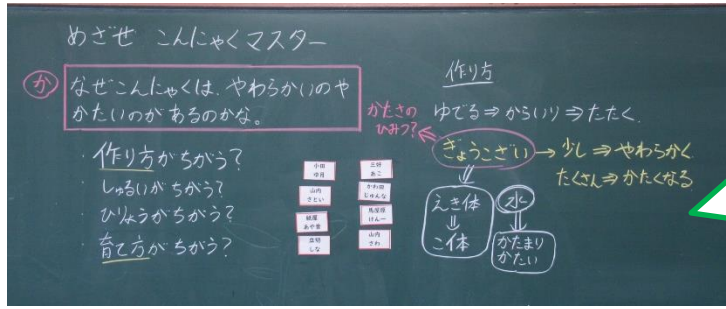 めざせ こんにゃくマスター
か
なぜこんにゃくは、やわらかいのや
かたいのがあるのかな。
・作り方がちがう?
・しゅるいがちがう?
・ひりょうがちがう?
・育て方がちがう?
小田
三好
あこ
山内
さとい
かわ田
じゅんな
あや音
けんー
しな
山内
さわ
作り方
ゆでる⇒からいり⇒たたく
かたさの
ひみつ?
ぎょうこざい→少し⇒やわらかく
たくさん⇒かたくなる
えき体
⇓
こ体
水
かたまり
かたい